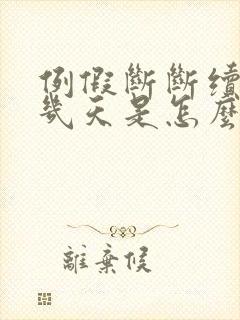 例假斷斷續
幾天是怎麼
離棄候